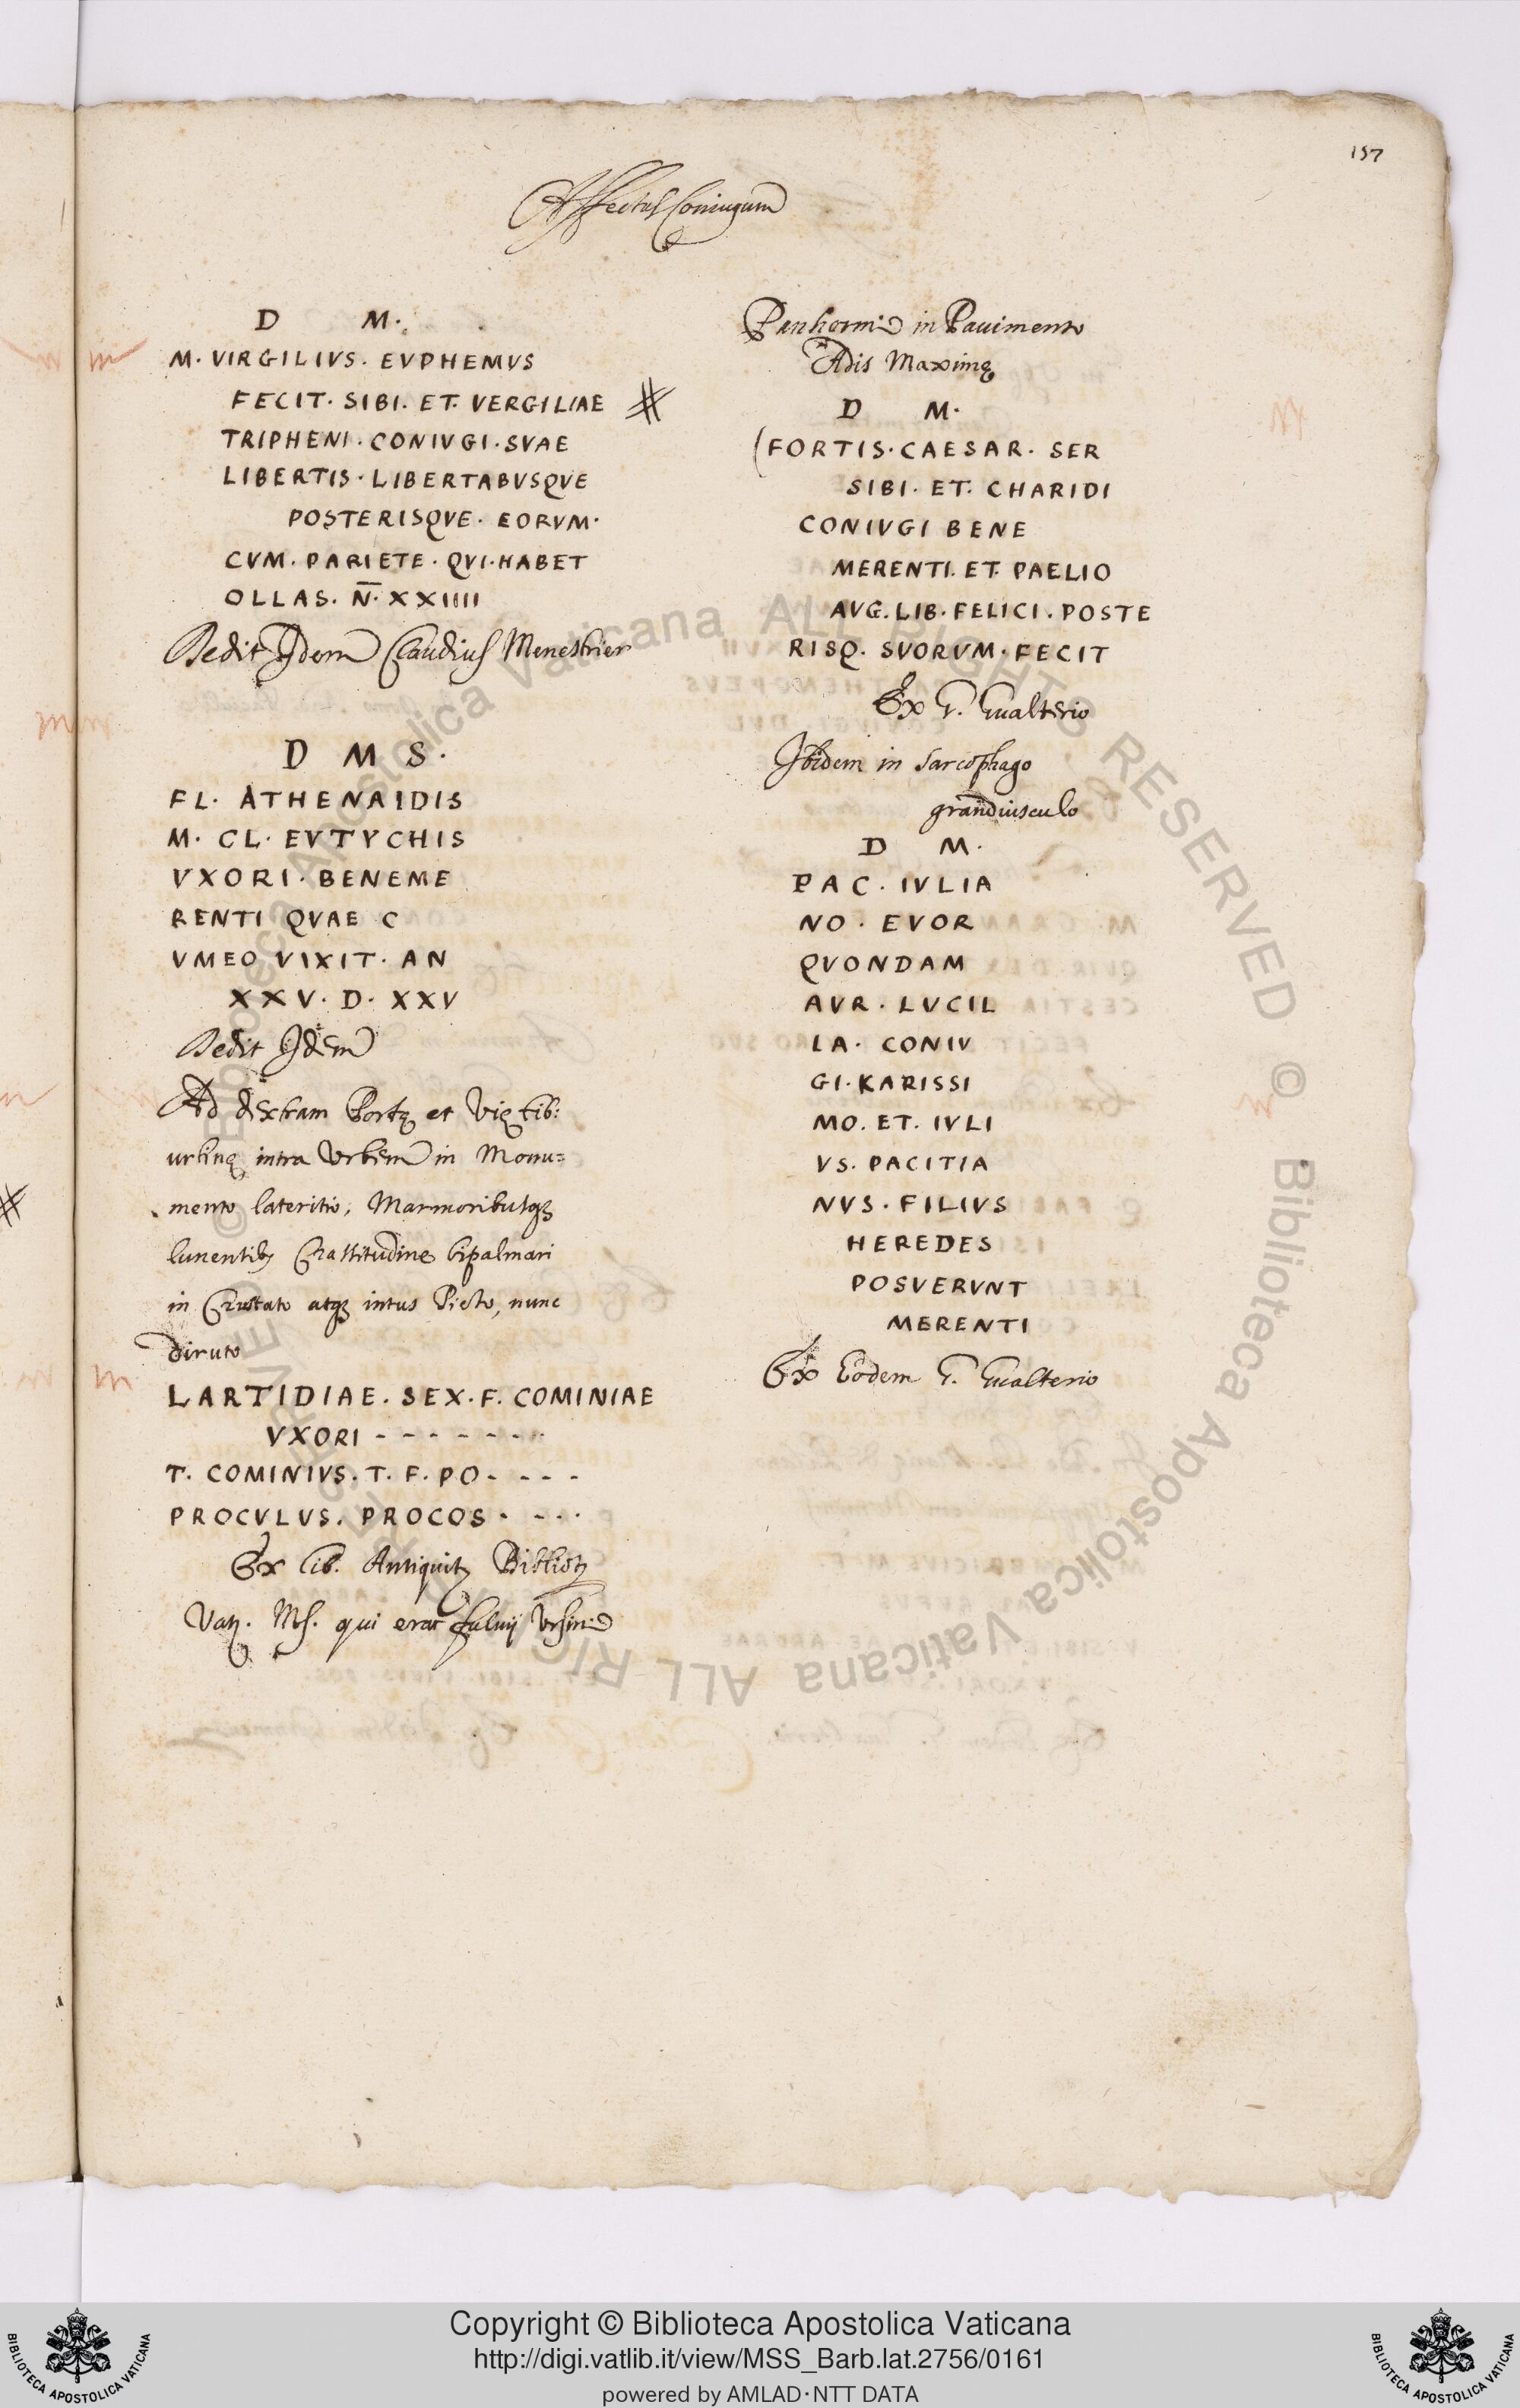 157
Affectus Coniugum
D M.
M. VIRGILIVS. EVPHEMVS
FECIT. SIBI. ET. VERGILIAE
TRIPHENI. CONIVGI. SVAE
LIBERTIS. LIBERTABVSQVE
POSTERISQVE. EORVM.
CVM. PARIETE. QVI. HABET
OLLAS. N̅. XXIIII
Dedit Idem Claudius Menestrier
D M S.
FL. ATHENAIDIS
M. CL. EVTYCHIS
VXORI. BENEME
RENTI QVAE C
VMEO VIXIT. AN
XXV. D. XXV
Dedit Idem
Ad dextram Portę et Vię tib:
urtinę intra Urbem in Monu=
mento lateritio, Marmoribusq
Crassitudine bipalmari
in Crustato atq intus Picto, nunc
diruto
LARTIDIAE. SEX. F. COMINIAE
VXORI - - - - - - -
T. COMINIVS. T. F. PO - - - -
PROCVLVS. PROCOS - - - -
Ex lib. Antiquit Bibliot
Vat. Ms. qui erat fuluij Ursini
Panhormi in Pauimento
Ædis Maximę
D M.
(FORTIS. CAESAR. SER
SIBI. ET. CHARIDI
CONIVGI BENE
MERENTI. ET. PAELIO
AVG. LIB. FELICI. POSTE
RISQ. SVORVM. FECIT
Ex G. Gualterio
Ibidem in sarcophago
grandiusculo
D M.
PAC. IVLIA
NO. EVOR
QVONDAM
AVR. LVCIL
LA. CONIV
GI. KARISSI
MO. ET. IVLI
VS. PACITIA
NVS. FILIVS
HEREDES
POSVERVNT
MERENTI
Ex Eodem G. Gualterio
© Biblioteca Apostolica Vaticana ALL RIGHTS RESERVED © Biblioteca Apostolica Vaticana ALL RIGHTS RESERVED
Copyright © Biblioteca Apostolica Vaticana
http://digi.vatlib.it/view/MSS_Barb.lat.2756/0161
powered by AMLAD·NTT DATA
BIBLIOTECA APOSTOLICA VATICANA
BIBLIOTECA APOSTOLICA VATICANA